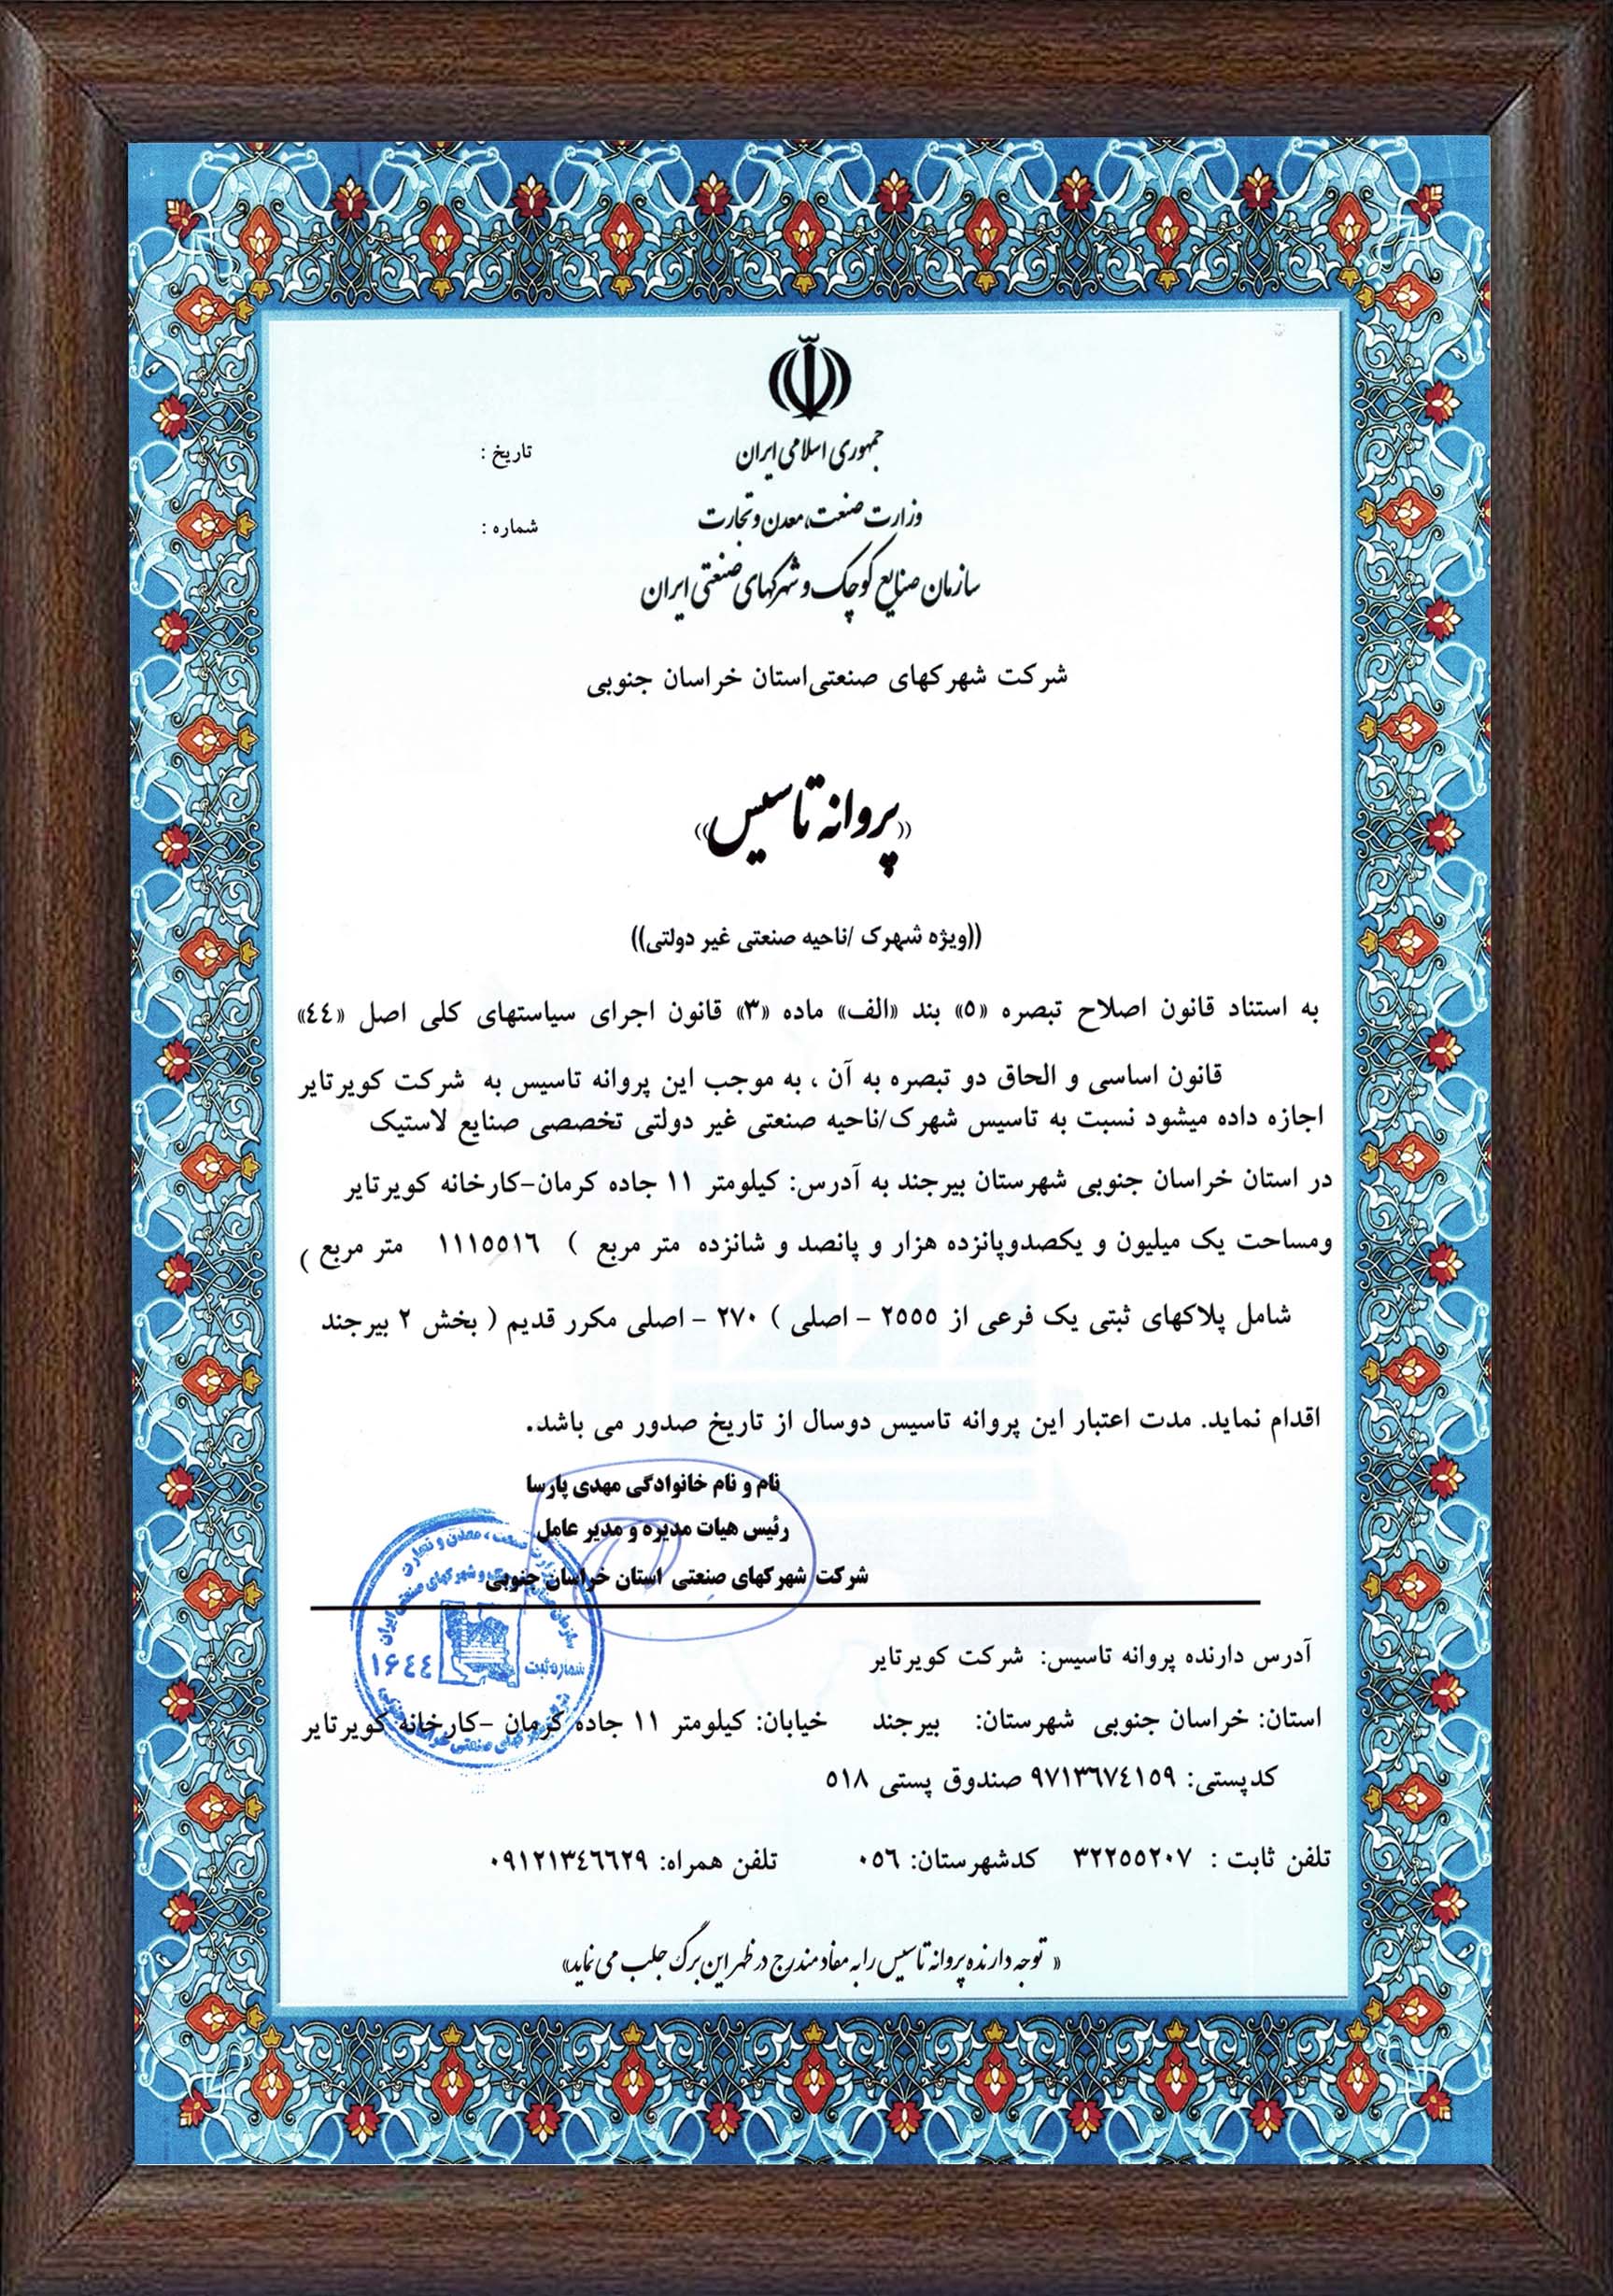 جمهوری اسلامی ایران
تاریخ :
وزارت صنعت، معدن و تجارت
شماره :
سازمان صنایع کوچک و شهرکهای صنعتی ایران
شرکت شهرکهای صنعتی استان خراسان جنوبی
((پروانه تاسیس))
((ویژه شهرک /ناحیه صنعتی غیر دولتی))
به استناد قانون اصلاح تبصره «٥» بند «الف» ماده «٣» قانون اجرای سیاستهای کلی اصل «٤٤»
قانون اساسی و الحاق دو تبصره به آن ، به موجب این پروانه تاسیس به شرکت کویرتایر
اجازه داده میشود نسبت به تاسیس شهرک/ناحیه صنعتی غیر دولتی تخصصی صنایع لاستیک
در استان خراسان جنوبی شهرستان بیرجند به آدرس: کیلومتر ١١ جاده کرمان-کارخانه کویرتایر
ومساحت یک میلیون و یکصدوپانزده هزار و پانصد و شانزده متر مربع ( ١١١٥٥١٦ متر مربع )
شامل پلاکهای ثبتی یک فرعی از ٢٥٥٥ - اصلی ( ٢٧٠ - اصلی مکرر قدیم ) بخش ٢ بیرجند
اقدام نماید. مدت اعتبار این پروانه تاسیس دوسال از تاریخ صدور می باشد.
نام و نام خانوادگی مهدی پارسا
رئیس هیات مدیره و مدیر عامل
شرکت شهرکهای صنعتی استان خراسان جنوبی
وزارت صنعت ، معدن و تجارت
سازمان صنایع کوچک و شهرکهای صنعتی ایران
شماره ثبت ١۶٤٤
آدرس دارنده پروانه تاسیس: شرکت کویرتایر
استان: خراسان جنوبی شهرستان: بیرجند خیابان: کیلومتر ١١ جاده کرمان -کارخانه کویرتایر
کدپستی: ٩٧١٣٦٧٤١٥٩ صندوق پستی ٥١٨
تلفن ثابت : ٣٢٢٥٥٢٠٧ کدشهرستان: ٠٥٦ تلفن همراه: ٠٩١٢١٣٤٦٦٢٩
« توجه دارنده پروانه تاسیس را به مفاد مندرج در ظهر این برگ جلب می نماید»